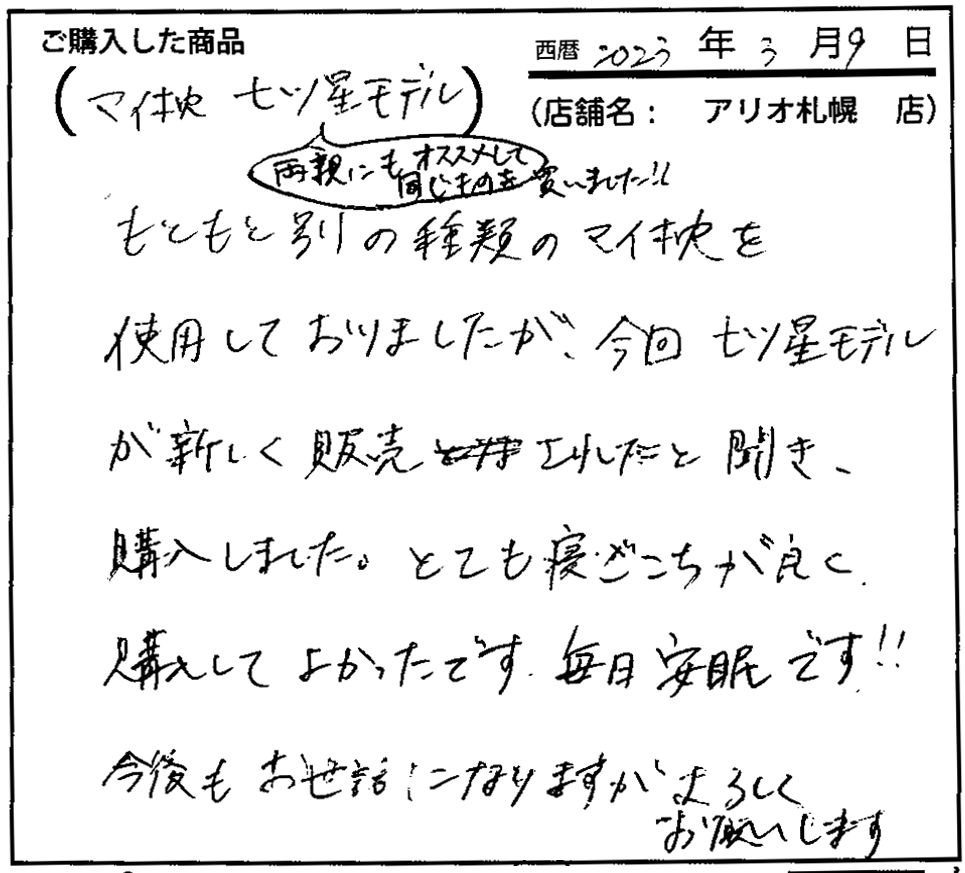 ご購入した商品
西暦 2023 年 3 月 9 日
(マイ枕 七ツ星モデル)
(店舗名： アリオ札幌 店)
両親にもオススメして
同じものを買いました!!
もともと別の種類のマイ枕を
使用しておりましたが、今回 七ツ星モデル
が新しく販売されたと聞き、
購入しました。とても寝ごこちが良く
購入してよかったです。毎日安眠です!!
今後もお世話になりますがよろしく
お願いします